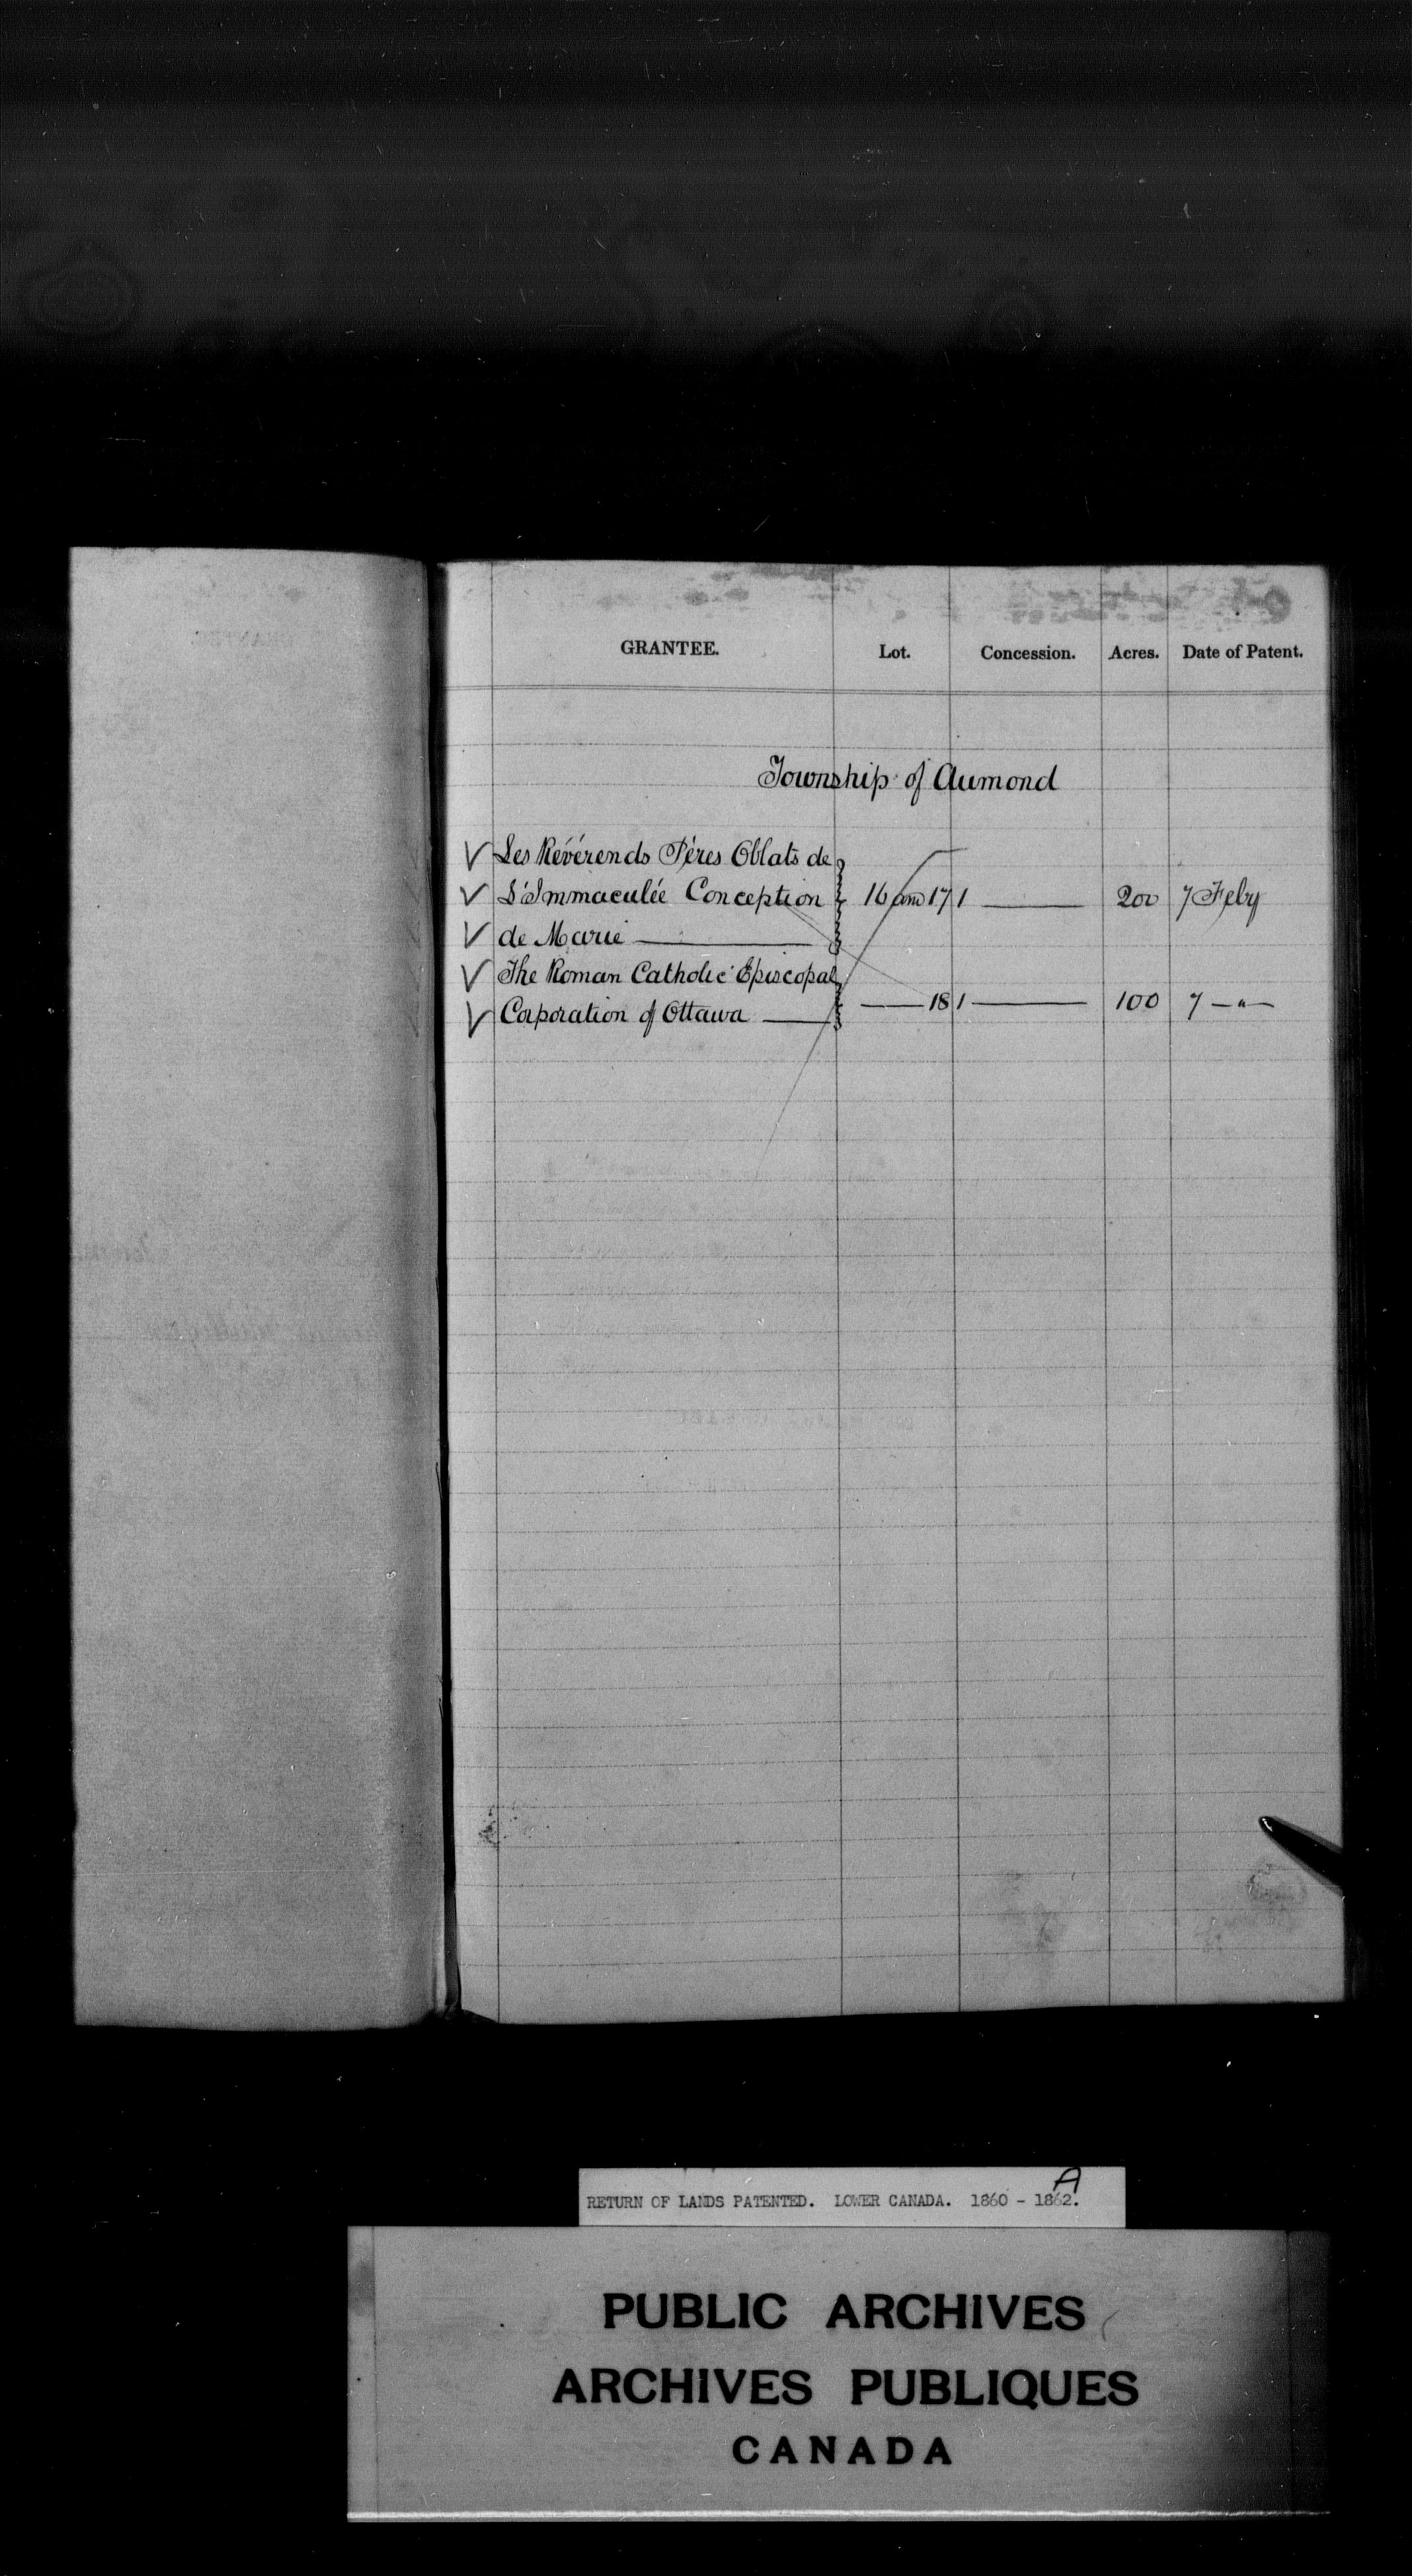 GRANTEE. Lot. Concession. Acres. Date of Patent.
Township of Aumond
Les Révérends Péres Oblats de
L'Immaculée Conception 16 and 17 1 200 7 Feby
de Marie
The Roman Catholic Episcopal
Corporation of Ottawa 18 1 100 7 — " —
A
RETURN OF LANDS PATENTED. LOWER CANADA. 1860 - 1862.
PUBLIC ARCHIVES
ARCHIVES PUBLIQUES
CANADA